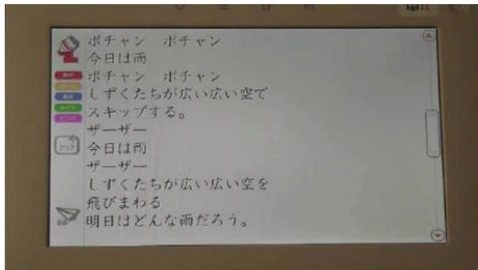 ポチャン　ポチャン
今日は雨
ポチャン　ポチャン
しずくたちが広い広い空で
スキップする。
ザーザー
今日は雨
ザーザー
しずくたちが広い広い空を
飛びまわる
明日はどんな雨だろう。